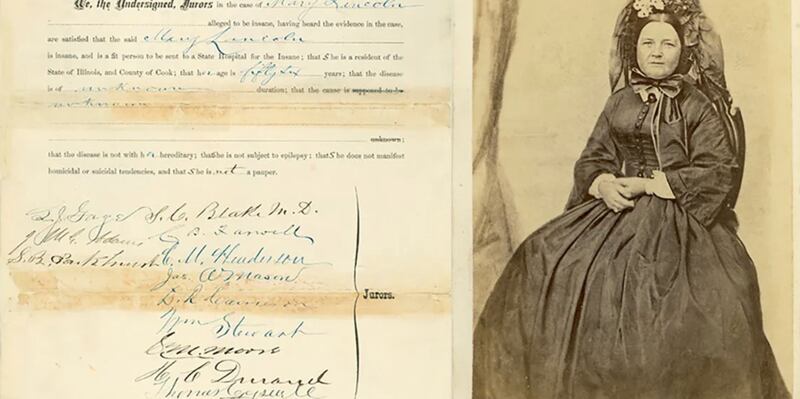 We, the Undersigned, Jurors in the case of Mary Lincoln
alleged to be insane, having heard the evidence in the case,
are satisfied that the said Mary Lincoln
is insane, and is a fit person to be sent to a State Hospital for the Insane; that She is a resident of the
State of Illinois, and County of Cook; that her age is fifty six years; that the disease
is of unknown duration; that the cause is supposed to be
unknown
unknown;
that the disease is not with her hereditary; that She is not subject to epilepsy; that She does not manifest
homicidal or suicidal tendencies, and that She is not a pauper.
L. J. Gage S. C. Blake M. D.
Adams C. B. Farwell
S. B. Parkhurst C. M. Henderson
Jas. A Mason
D. R. Cameron
Jurors.
Wm Stewart
M. Moore
H. C. Durand
Thomas